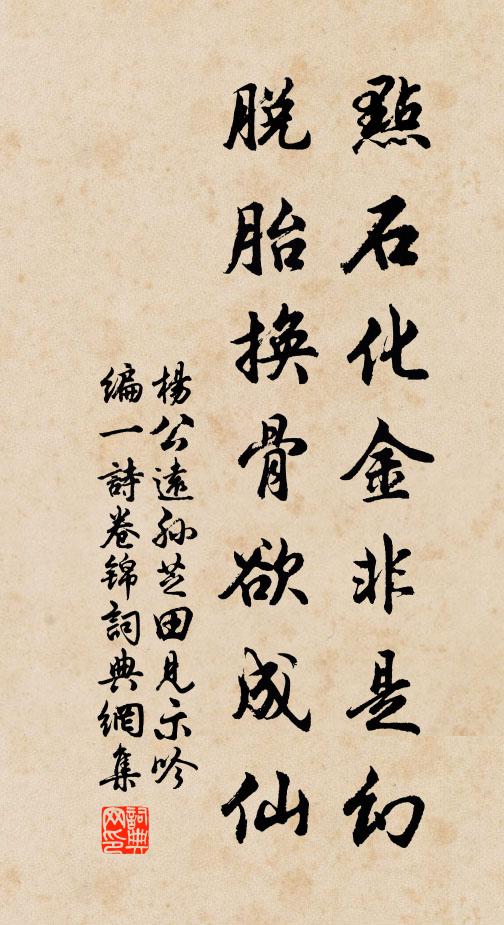 點石化金非是幻
脫胎換骨欲成仙
楊公遠孫芝田見示吟
編一詩卷錦詞典網集
詞典网印